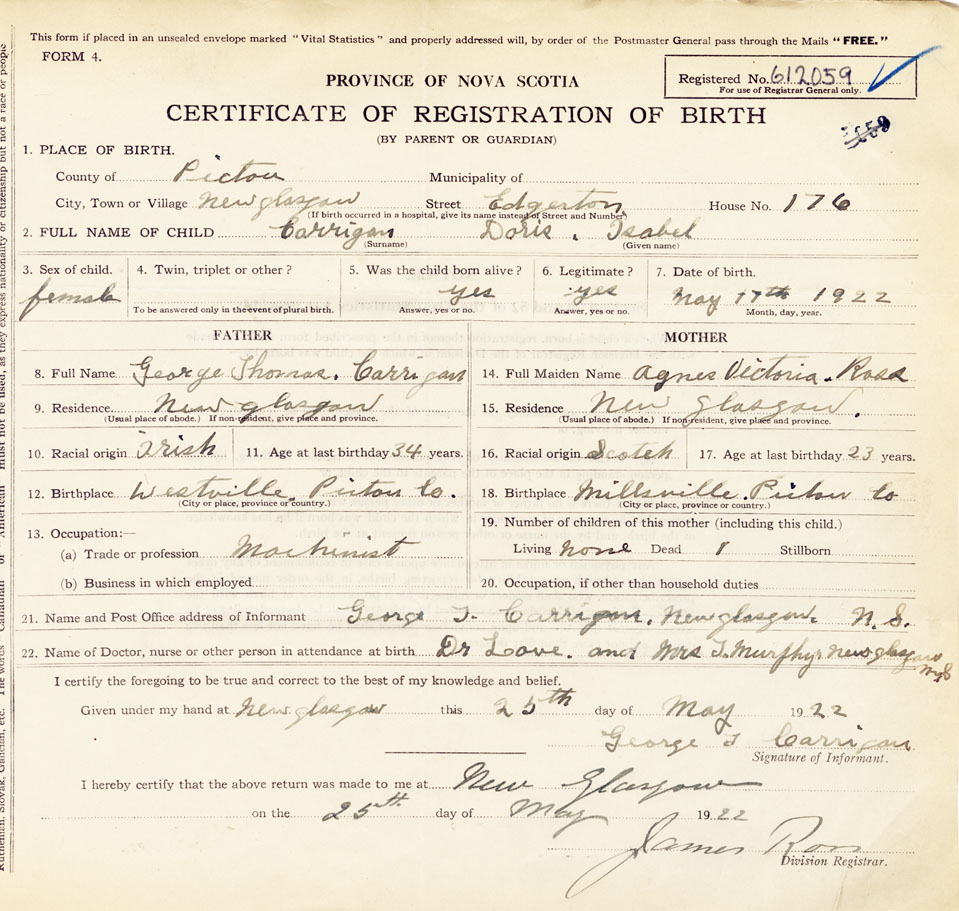 This form if placed in an unsealed envelope marked "Vital Statistics" and properly addressed will, by order of the Postmaster General pass through the Mails "FREE."
FORM 4.
Registered No. 612059
For use of Registrar General only.
PROVINCE OF NOVA SCOTIA
CERTIFICATE OF REGISTRATION OF BIRTH
(BY PARENT OR GUARDIAN)
1. PLACE OF BIRTH.
County of Pictou Municipality of
City, Town or Village New glasgow Street Edgerton House No. 176
(If birth occurred in a hospital, give its name instead of Street and Number)
2. FULL NAME OF CHILD Carrigan Doris. Isabel
(Surname) (Given name)
3. Sex of child. 4. Twin, triplet or other? 5. Was the child born alive? 6. Legitimate? 7. Date of birth.
female yes yes May 17th 1922
To be answered only in the event of plural birth. Answer, yes or no. Answer, yes or no. Month, day, year.
FATHER MOTHER
8. Full Name George Thomas. Carrigan 14. Full Maiden Name Agnes Victoria. Ross
9. Residence New glasgow 15. Residence New Glasgow.
(Usual place of abode.) If non-resident, give place and province. (Usual place of abode.) If non-resident, give place and province.
10. Racial origin Irish 11. Age at last birthday 34 years. 16. Racial origin Scotch 17. Age at last birthday 23 years.
12. Birthplace Westville. Pictou Co. 18. Birthplace Millsville. Pictou Co
(City or place, province or country.) (City or place, province or country.)
13. Occupation:— 19. Number of children of this mother (including this child.)
(a) Trade or profession Machinist Living none Dead 1 Stillborn
(b) Business in which employed 20. Occupation, if other than household duties
21. Name and Post Office address of Informant George T. Carrigan. New glasgow. N. S.
22. Name of Doctor, nurse or other person in attendance at birth Dr Love. and Mrs T. Murphy. New glasgow N S
I certify the foregoing to be true and correct to the best of my knowledge and belief.
Given under my hand at New glasgow this 25th day of May 1922
George T Carrigan
Signature of Informant.
I hereby certify that the above return was made to me at New Glasgow
on the 25th day of May 1922
James Ross
Division Registrar.